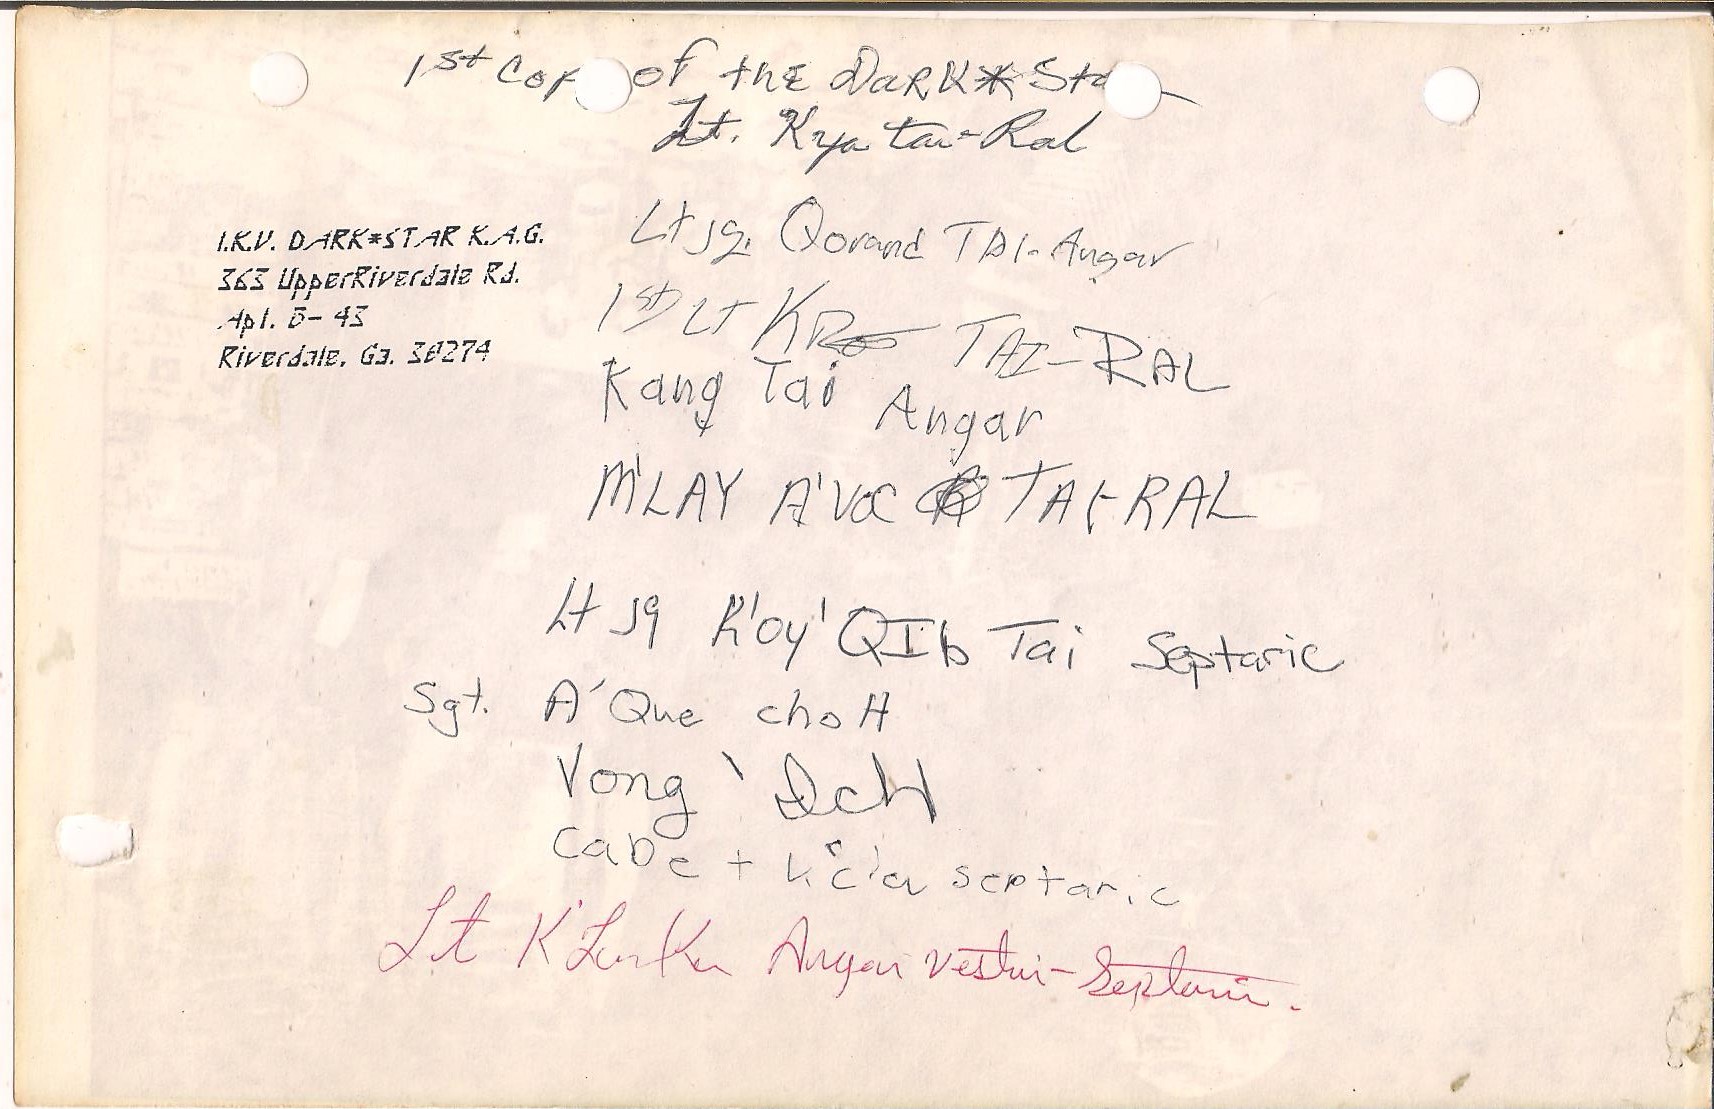 1st Cop of the DARK*Sta
Lt. Kya tai-Ral
I.K.V. DARK*STAR K.A.G.
363 UpperRiverdale Rd.
Apt. 43
Riverdale, Ga. 30274
Lt jg. Qorand TAI-Angar
1st LT TAI-RAL
Kang Tai Angar
M'LAY A'VOC TAI-RAL
Lt jg K'oy' QIb Tai Septaric
Sgt. A'Que choH
Vong
Cabe + septaric
Lt Angar Vestai-Septaric.